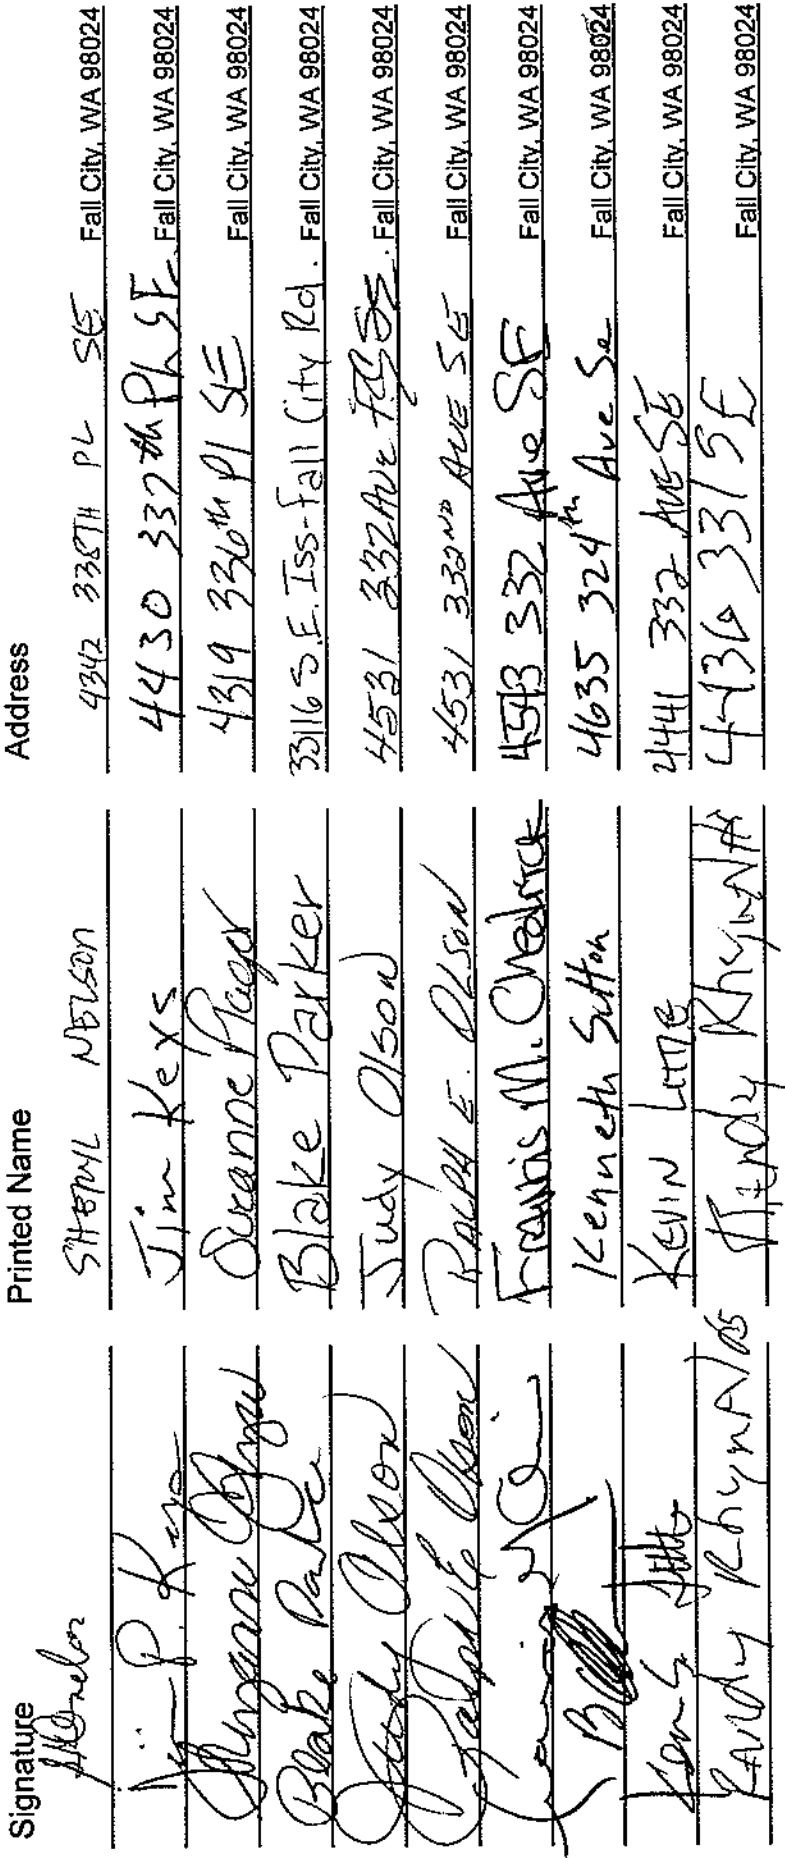 Signature Printed Name Address
SHERYL NELSON 4342 338TH PL SE Fall City, WA 98024
Jim Keys 4430 337th PL SE Fall City, WA 98024
Suzanne Prager 4319 336th Pl SE Fall City, WA 98024
Blake Parker Blake Parker 33116 S.E. Iss-Fall City Rd. Fall City, WA 98024
Judy Olson Judy Olson 4531 332 Ave SE. Fall City, WA 98024
Ralph E Olson RALPH E. OLSON 4531 332ND AVE SE Fall City, WA 98024
Francis M. 4543 332 Ave SE Fall City, WA 98024
Kenneth Sutton 4635 324th Ave Se Fall City, WA 98024
KEVIN LITTLE 4441 332 AVE SE Fall City, WA 98024
Randy 4436 331 SE Fall City, WA 98024